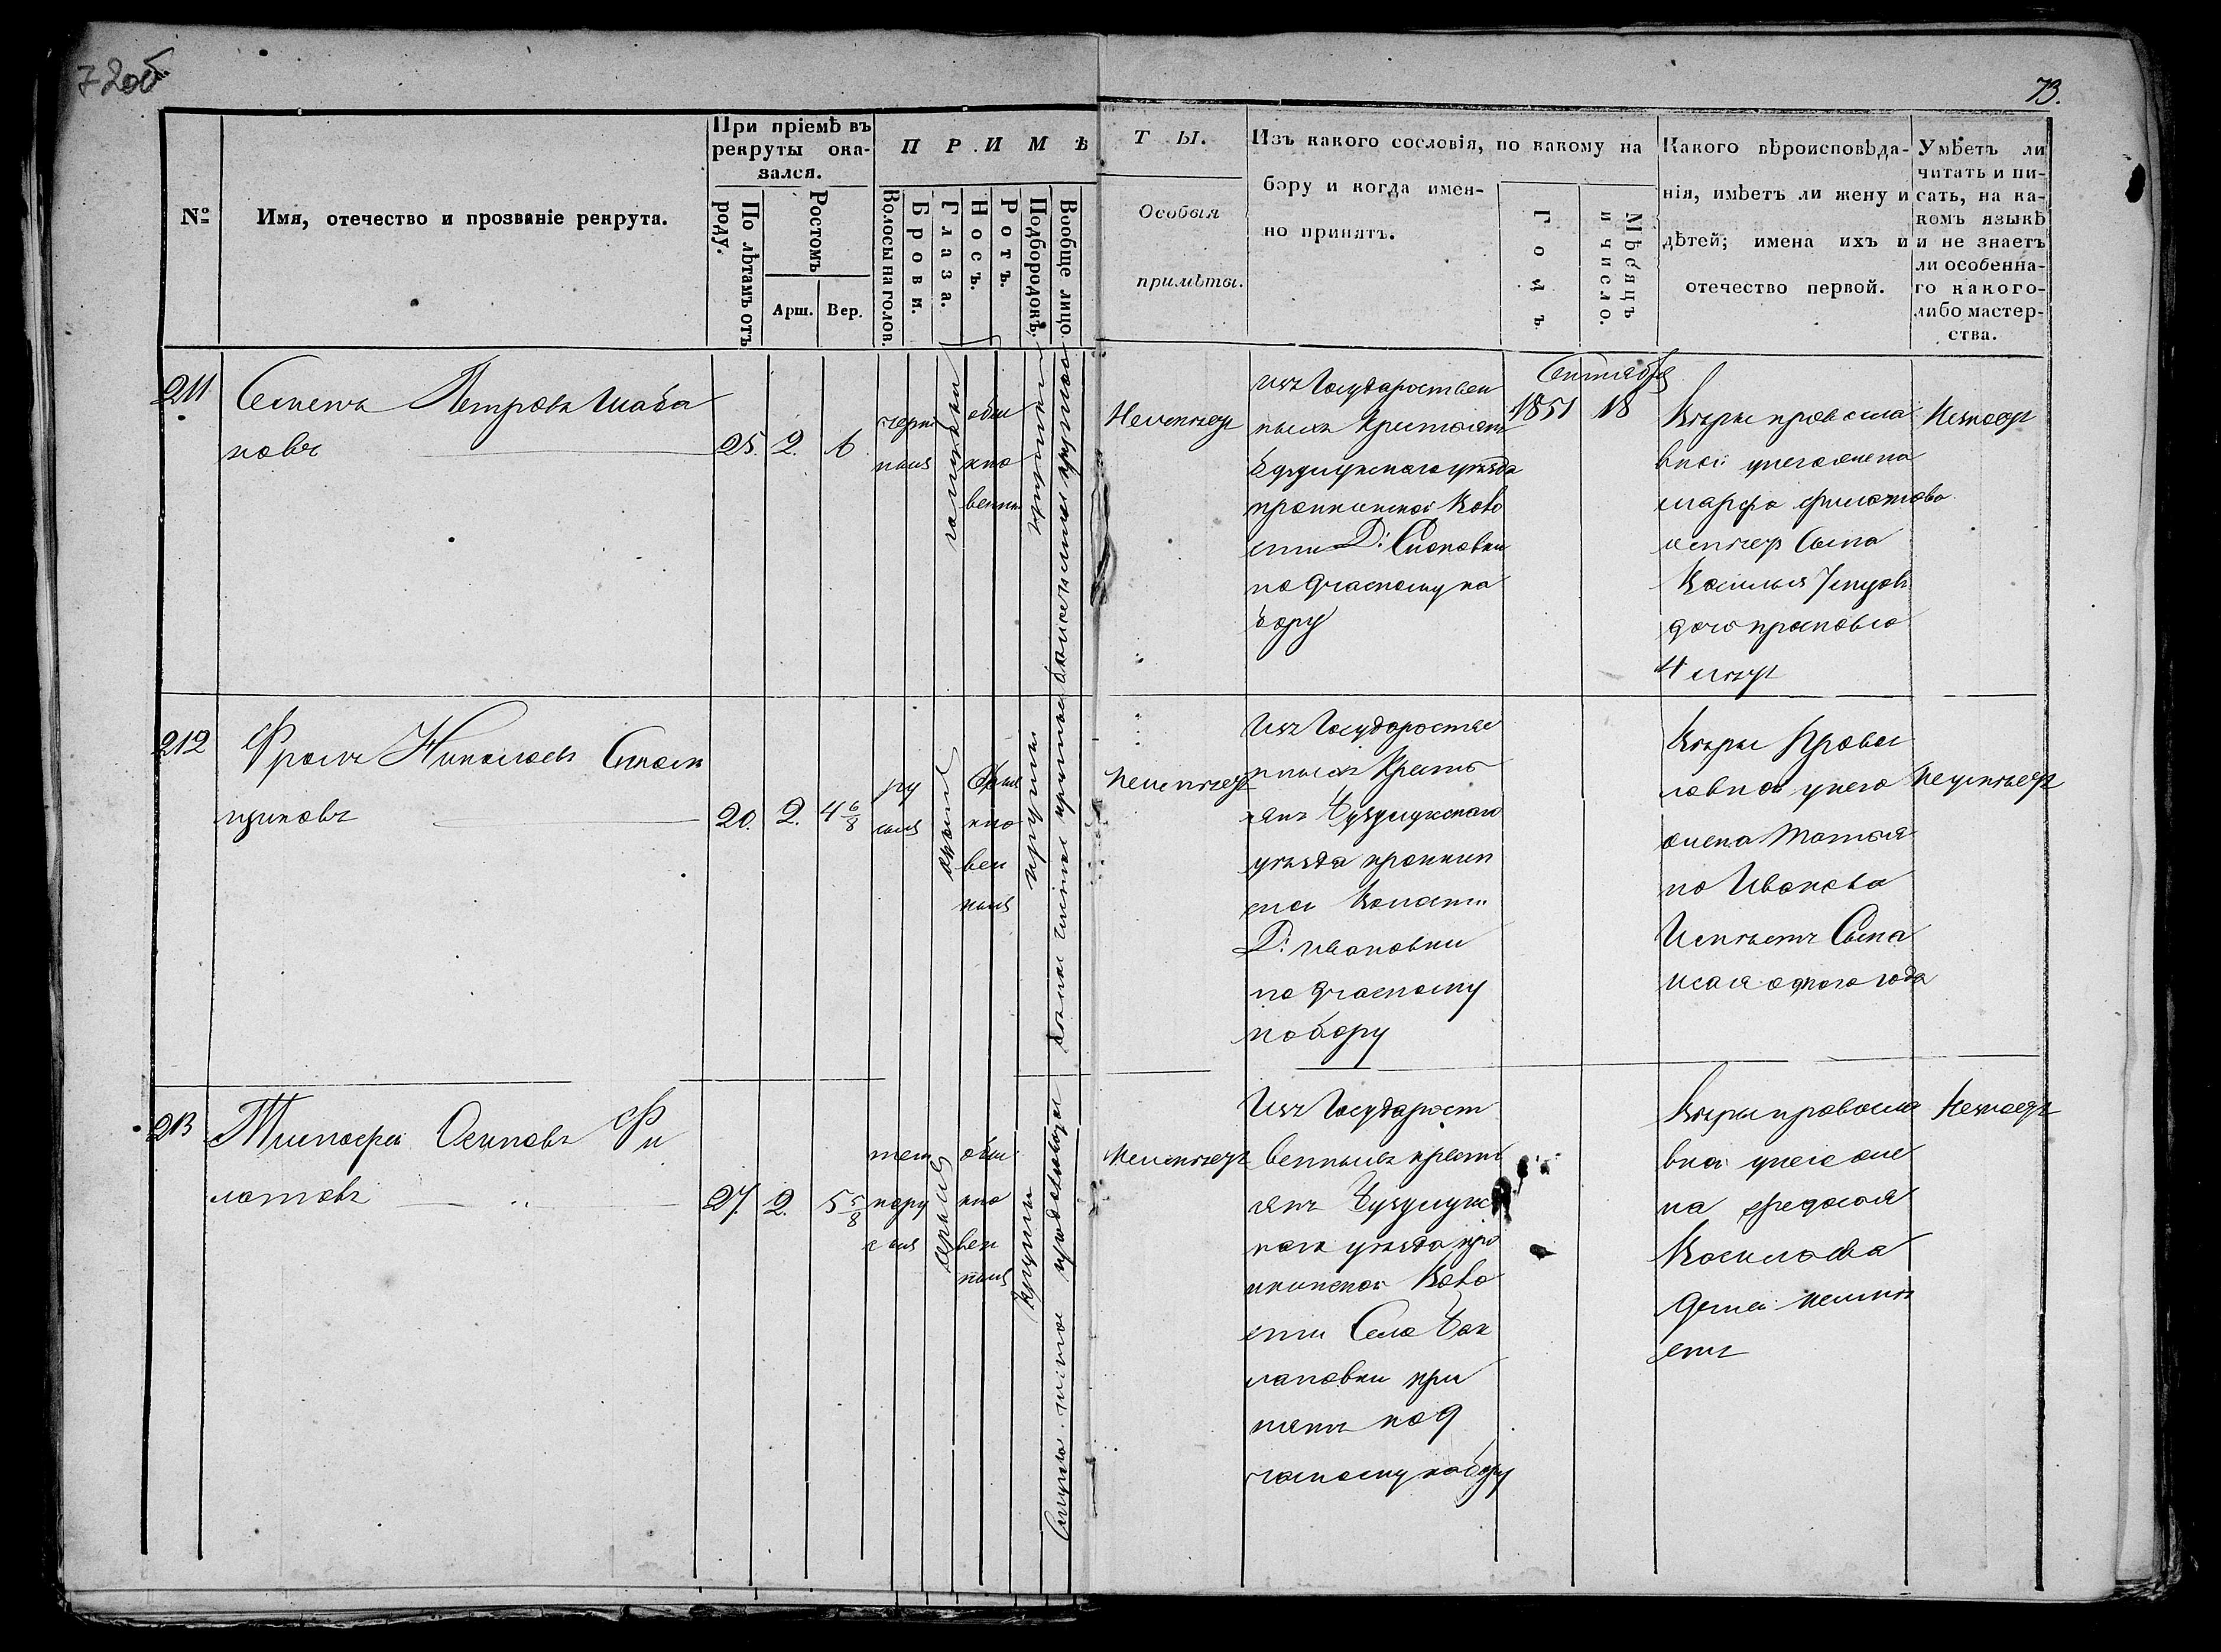 72об
73.
№
Имя, отечество и прозваніе рекрута.
При пріемѣ въ
рекруты ока-
зался.
По лѣтамъ отъ
роду.
Ростомъ
Арш.
Вер.
ПРИМѢ
Волосы на голов.
Брови.
Глаза.
Носъ.
Ротъ.
Подбородокъ.
Вообще лицо
ТЫ.
Особыя
примѣты.
Изъ какого сословія, по какому на
бору и когда имен-
но принятъ.
Годъ
Мѣсяцъ
и число.
Какого вѣроисповѣда-
нія, имѣетъ ли жену и
дѣтей; имена ихъ и
отечество первой.
Умѣетъ ли
читать и пи-
сать, на ка-
комъ языкѣ
и не знаетъ
ли особенна-
го какого-
либо мастер-
ства.
211
Семенъ Петровъ Шаба
новъ
25. 2. 6
черны
обы
кно
венны
Неимѣетъ
изъ Государствен
ныхъ Крестьянъ
Бузулукскаго уѣзда
пронкинской Воло
сти Д: Сиповки
по 9 частному на
бору
Сентября
1851 18
Вѣры правосла
вной у него жена
марфа филатова
имѣетъ Сына
Василья
дочь прасковью
4 лѣтъ
Незнаетъ
212
Фролъ Николаевъ
20. 2. 4 6/8
ру
сыя
карыя
Обык
кно
вен
ныя
Неимѣетъ
Изъ Государстве
нныхъ Кресть
янъ Бузулукскаго
уѣзда пронкин
ской Волости
Д: Ивановки
по 9 частному
набору
Вѣры Правос
лавной у него
жена Татья
на Иванова
Имѣетъ Сына
исая одного года
Неумѣетъ
213
Тимофей Осиповъ Фи
латовъ
27. 2. 5 5/8
тем
нору
сыя
серыя
обы
кно
вен
ныя
круглый
Неимѣетъ
Изъ Государст
венныхъ кресть
янъ Бузулукс
каго уѣзда про
нкинской Воло
сти Села Бак
лановки при
нятъ по 9
частному набору
Вѣры правосла
вной у него же
на федосья
Васильева
детей неимѣ
етъ
Незнаетъ